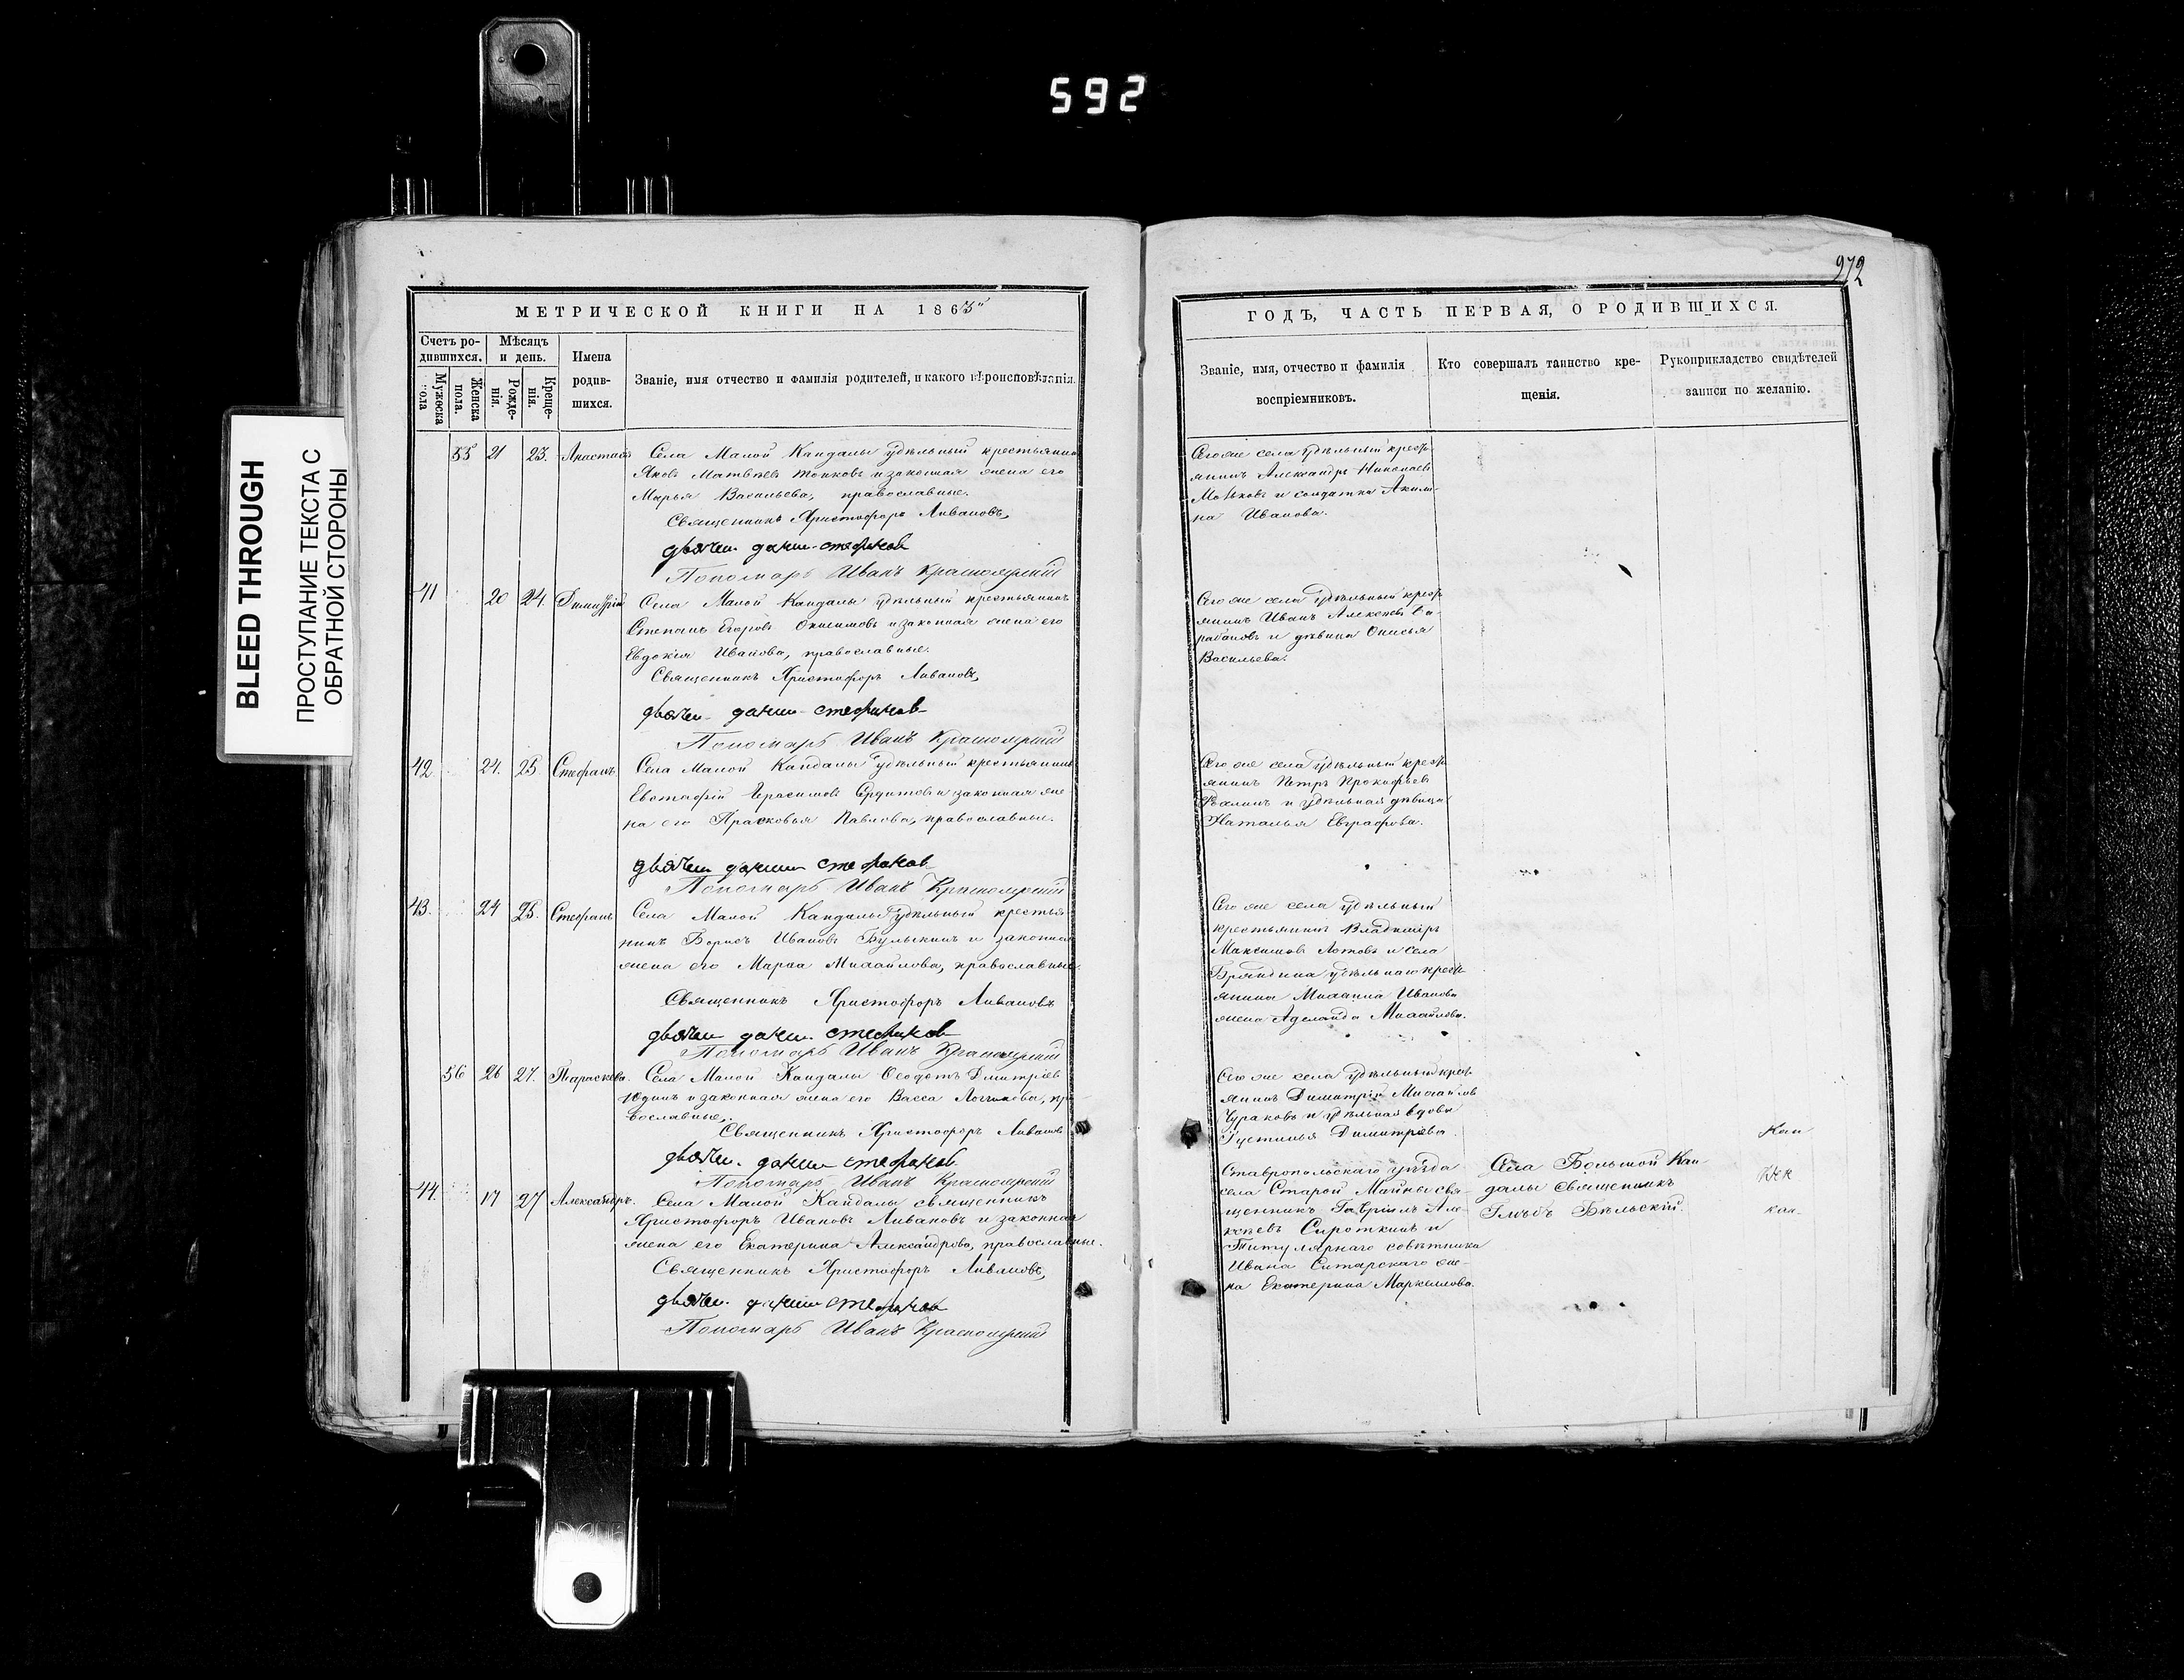 592
972
BLEED THROUGH
ПРОСТУПАНИЕ ТЕКСТА С
ОБРАТНОЙ СТОРОНЫ
МЕТРИЧЕСКОЙ КНИГИ НА 1865
Счетъ ро-
дившихся.
Мужеска
пола
Женска
пола.
Мѣсяцъ
и день.
Рожде-
нія.
Креще-
нія.
Имена
родив-
шихся.
Званіе, имя отчество и фамилія родителей, и какого вѣроисповѣданія.
55 21 23. Анастасія
Села Малой Кандалы удѣльный крестьянинъ
Яковъ Матвѣевъ и законная жена его
Марья Васильева, православные.
Священникъ Христофоръ Ливановъ,
Пономарь Иванъ Красноярскій
41 20 24. Димитрій
Села Малой Кандалы удѣльный крестьянинъ
Степанъ Егоровъ Онисимовъ и законная жена его
Евдокія Иванова, православные.
Священникъ Христофоръ Ливановъ,
Пономарь Иванъ Красноярскій
42. 24. 25 Стефанъ
Села Малой Кандалы удѣльный крестьянинъ
Евстафій Герасимовъ и законная же
на его Прасковья Павлова, православные.
Пономарь Иванъ Красноярскій
43. 24 25. Стефанъ
Села Малой Кандалы удѣльный крестья
нинъ Борисъ Ивановъ Булыкинъ и законная
жена его Марѳа Михайлова, православные.
Священникъ Христофоръ Ливановъ
Пономарь Иванъ Красноярскій
56 26 27. Параскева.
Села Малой Кандалы Ѳеодотъ Димитріев
Юдинъ и законная жена его Васса Логгинова, пра
вославные,
Священникъ Христофоръ Ливановъ
Пономарь Иванъ Красноярскій
44. 17 27 Александръ.
Села Малой Кандалы священникъ
Христофоръ Ивановъ Ливановъ и законная
жена его Екатерина Александрова, православные.
Священникъ Христофоръ Ливановъ,
Пономарь Иванъ Красноярскій
ГОДЪ, ЧАСТЬ ПЕРВАЯ, О РОДИВШИХСЯ.
Званіе, имя, отчество и фамилія
воспріемниковъ.
Кто совершалъ таинство кре-
щенія.
Рукоприкладство свидѣтелей
записи по желанію.
Сего же села удѣльный кресть
янинъ Александръ Николаевъ
и солдатка Акили-
на Иванова.
Сего же села удѣльный кресть
янинъ Иванъ Алексѣевъ
и дѣвица Онисья
Васильева.
Сего же села удѣльный кресть
янинъ Петръ Прокофьевъ
и удѣльная дѣвица
Наталья Евграфова.
Сего же села удѣльный
крестьянинъ Владиміръ
Максимовъ и села
Бряндина удѣльнаго кресть
янина Михаила Иванова
жена Аделаида Михайлова.
Сего же села удѣльный крест
янинъ Димитрій Михайловъ
Чураковъ и удѣльная вдова
Устинья Димитріева.
Ставропольскаго уѣзда
села Старой Майны свя-
щенникъ Гавріилъ Але
ксѣевъ Сироткинъ и
Титулярнаго совѣтника
Ивана Ситарскаго же-
на Екатерина Маркеллова.
Села Большой Кан
далы священникъ
Глѣбъ Бѣльскій.